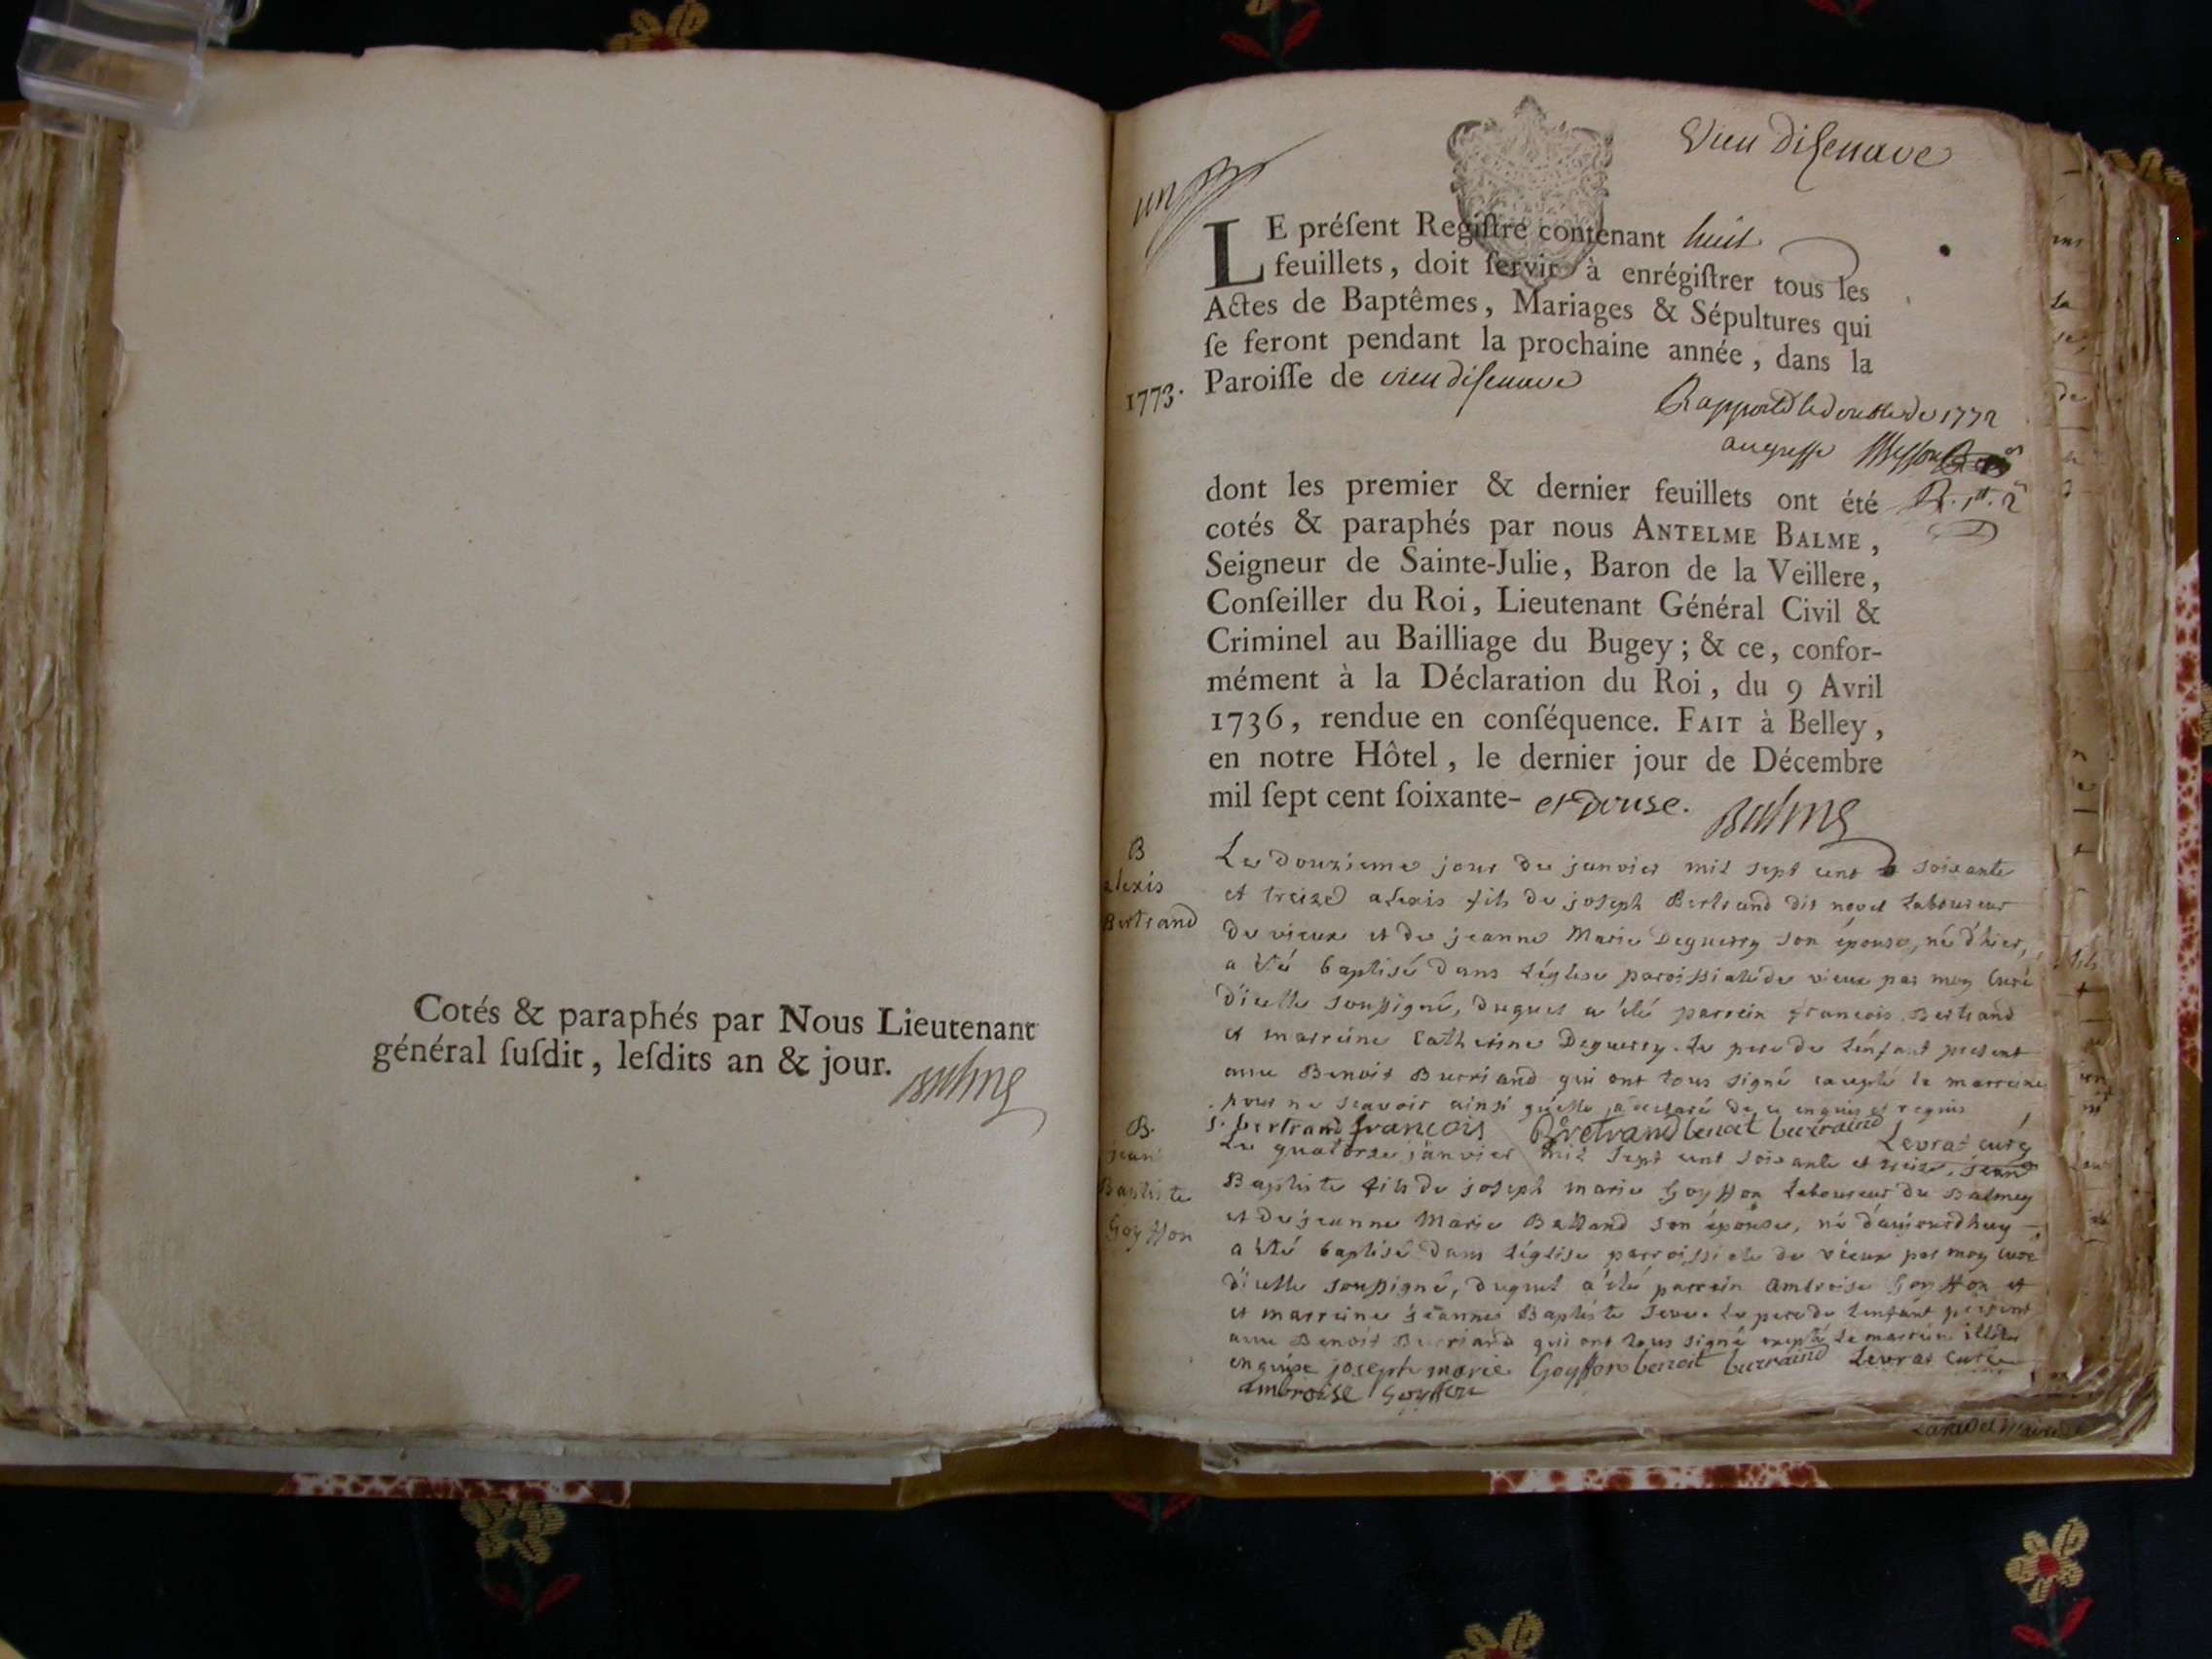 Cotés & paraphés par Nous Lieutenant
général ſuſdit, leſdits an & jour. Balme
Vieu diſenave
un
LE préſent Regiſtre contenant huit
feuillets, doit ſervir à enrégiſtrer tous les
Actes de Baptêmes, Mariages & Sépultures qui
ſe feront pendant la prochaine année, dans la
1773. Paroiſſe de vieu diſenave
Rapporté le double de 1772
au greffe
dont les premier & dernier feuillets ont été
cotés & paraphés par nous ANTELME BALME,
Seigneur de Sainte-Julie, Baron de la Veillere,
Conſeiller du Roi, Lieutenant Général Civil &
Criminel au Bailliage du Bugey; & ce, confor-
mément à la Déclaration du Roi, du 9 Avril
1736, rendue en conſéquence. FAIT à Belley,
en notre Hôtel, le dernier jour de Décembre
mil ſept cent ſoixante- et douse. Balme
B
alexis
Bertrand
Le douzieme jour de janvier mil sept cent soixante
et treize alexis fils de joseph Bertrand dit novel Laboureur
de vieux et de jeanne Marie Deguerry son épouse, né d'hier,
a été baptisé dans L'église paroissiale de vieux par moy Curé
d'icelle soussigné, duquel a été parrein francois Bertrand
et marreine Catherine Deguerry. Le pere de L'enfant présent
avec Benoit Burriand qui ont tous signé excepté la marreine
pour ne scavoir ainsi qu'elle a déclaré de ce enquise et requis
j. bertrand francois Bertrand benoit burriand Levrat curé
B.
jean
Baptiste
Goyffon
Le quatorze janvier mil sept cent soixante et treize, jean
Baptiste fils de joseph marie Goyffon Laboureur du Balmey
et de jeanne Marie Balland son épouse, né d'aujourdhuy
a été baptisé dans L'église parroissiale de vieux par moy curé
d'icelle soussigné, duquel a été parrein ambroise Goyffon et
et marreine jeanne Baptiste Seve. Le pere de L'enfant présent
avec Benoit Burriand qui ont tous signé excepté La marreine
enquise joseph marie Goyffon benoit burriand Levrat curé
ambroise Goyffon